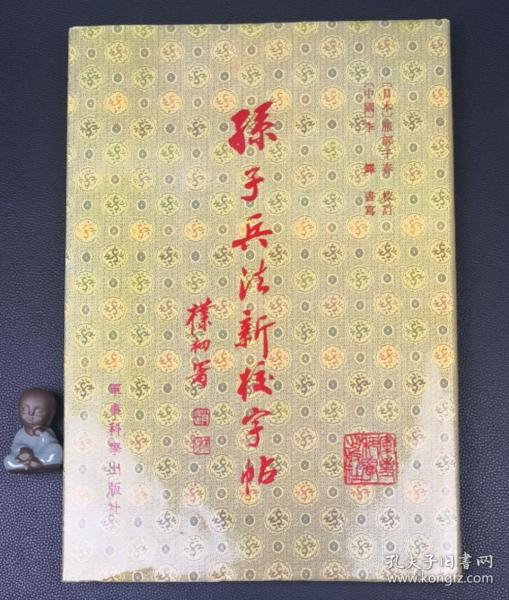 [日本]服部千春 校訂
[中國]李鐸 書寫
孫子兵法新校字帖
樸初署
軍事科學出版社
孔夫子旧书网
www.kongfz.com